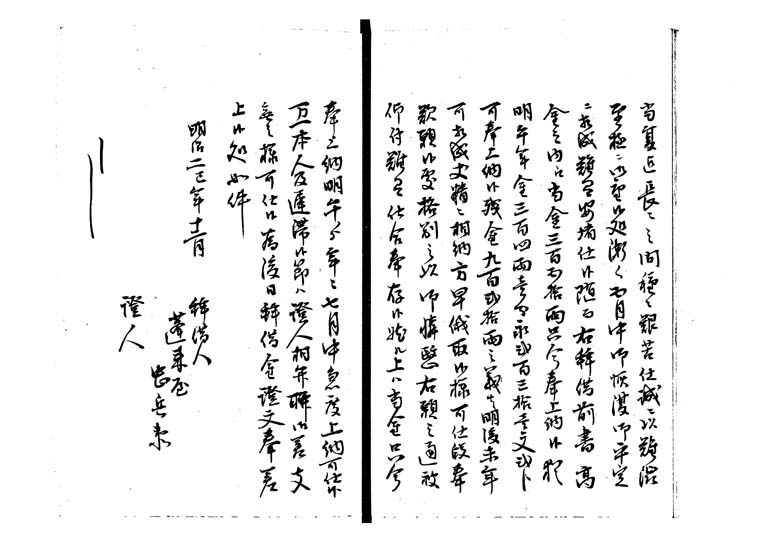 当夏已長々之間種々艱苦仕誠ニ以難渋
至極ニ御座候処漸々七月中御恢復御平定
ニ相成難有安堵仕候随而右拝借前書高
金之内江当金三百五拾両只今奉上納候猶
明午年金三百四両壱分永弐百三拾壱文弐分ト
可奉上納候残金九百弐拾両之義者明後未年
可相成丈精々相納方早俄取候様可仕段奉
歎願候処格別之以御憐愍右願之通被
仰付難有仕合奉存候然ル上ハ当金只今
奉上納明午より年々七月中急度上納可仕候
万一本人及遅滞候節ハ證人相弁聊御差支
無之様可仕候為後日拝借金證文奉差
上候処如件
明治二巳年十二月
拝借人
蓬莱屋
兵衛
證人